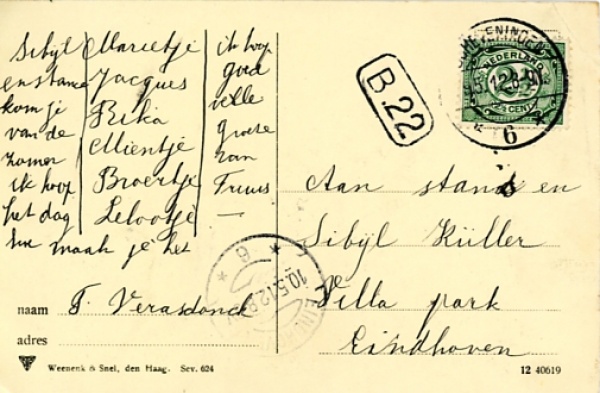 Sibijl
en stance
kom je
van de
zomer
ik hoop
het dag
hoe maak je het
Marietje
Jacques
Rika
Mientje
Broertje
Lelootje
ik hoop
goed
velle
groete
van
Truus
—
naam F. Verasdonck
adres
Weenenk & Snel, den Haag. Sev. 624
B.22
NEDERLAND
2½ CENT
6
10.5.12.8
6
Aan stance en
Sibijl Küller
Villa park
Eindhoven
12 40619